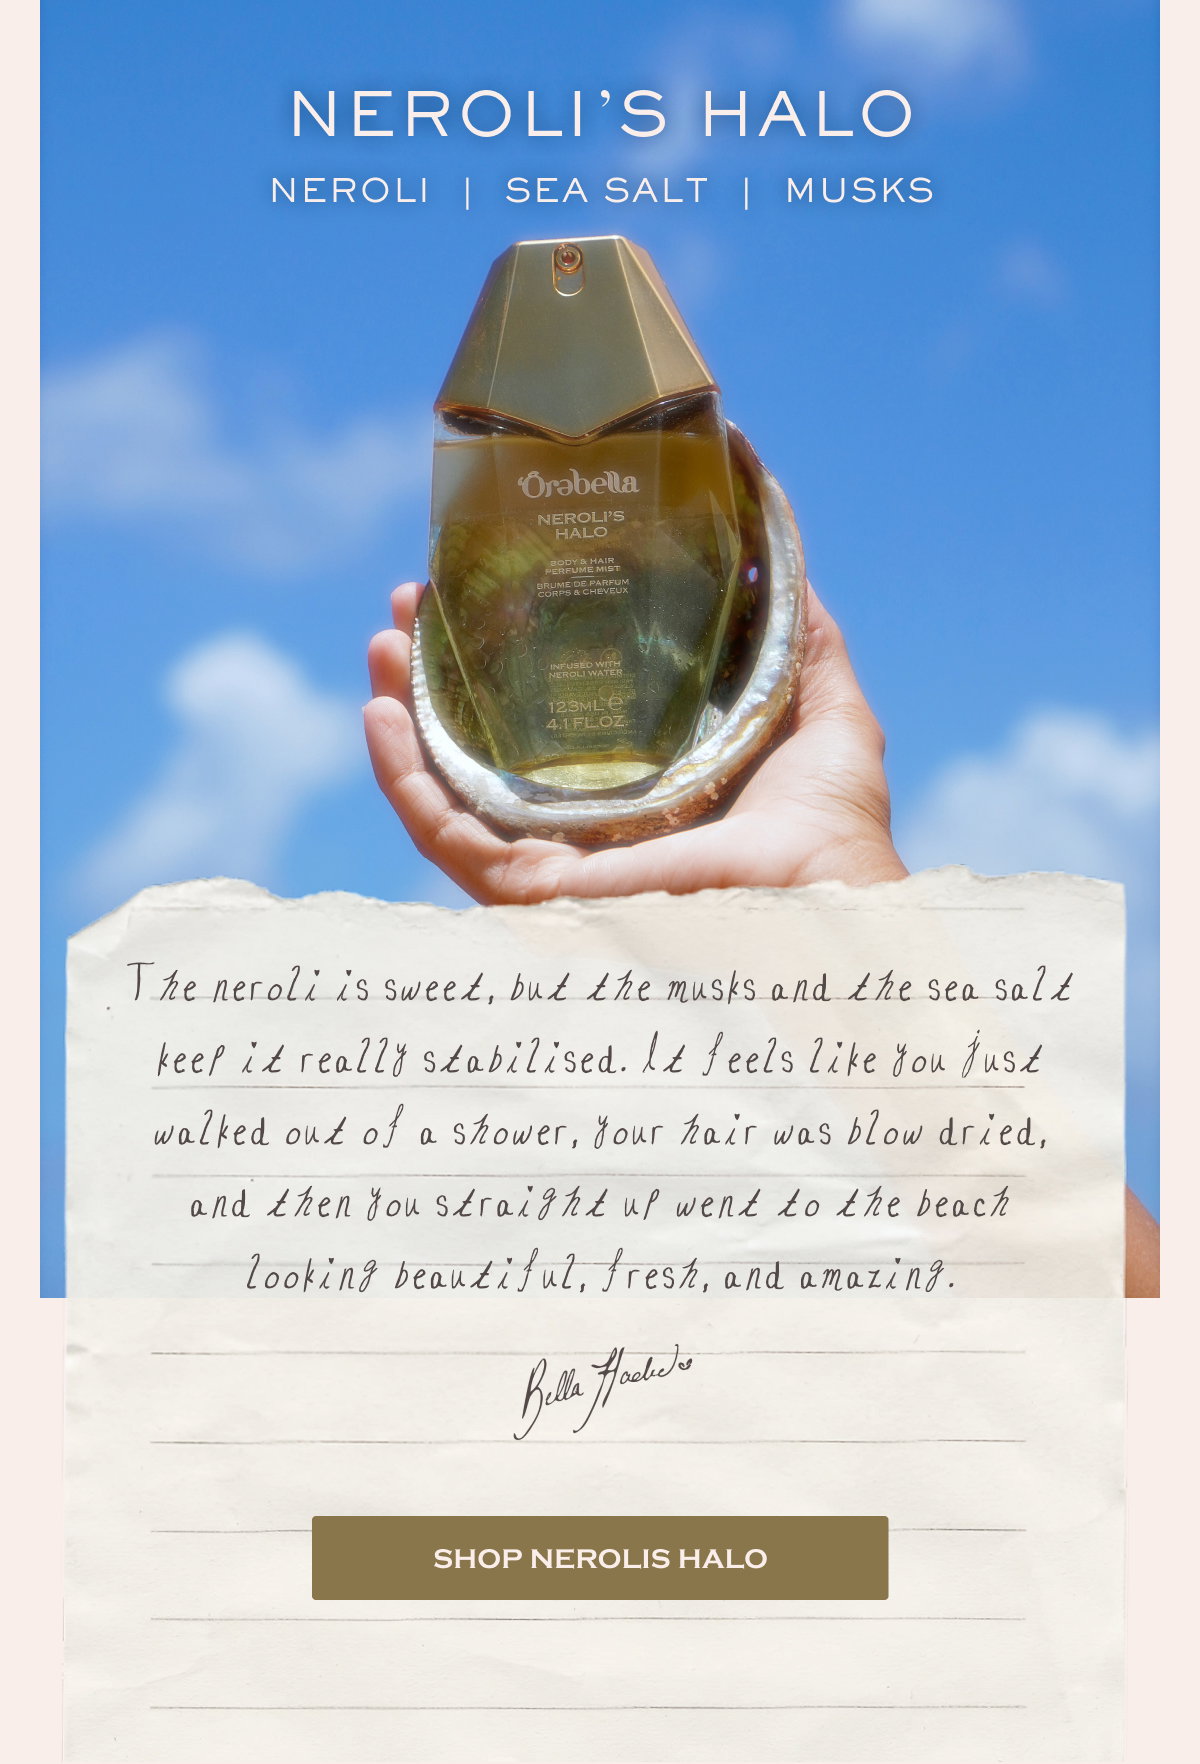 NEROLI'S HALO
NEROLI | SEA SALT | MUSKS
Ôrəbella
NEROLI'S
HALO
BODY & HAIR
PERFUME MIST
BRUME DE PARFUM
CORPS & CHEVEUX
INFUSED WITH
NEROLI WATER
123ML e
4.1 FL.OZ
The neroli is sweet, but the musks and the sea salt
keep it really stabilised. It feels like you just
walked out of a shower, your hair was blow dried,
and then you straight up went to the beach
looking beautiful, fresh, and amazing.
Bella
SHOP NEROLIS HALO